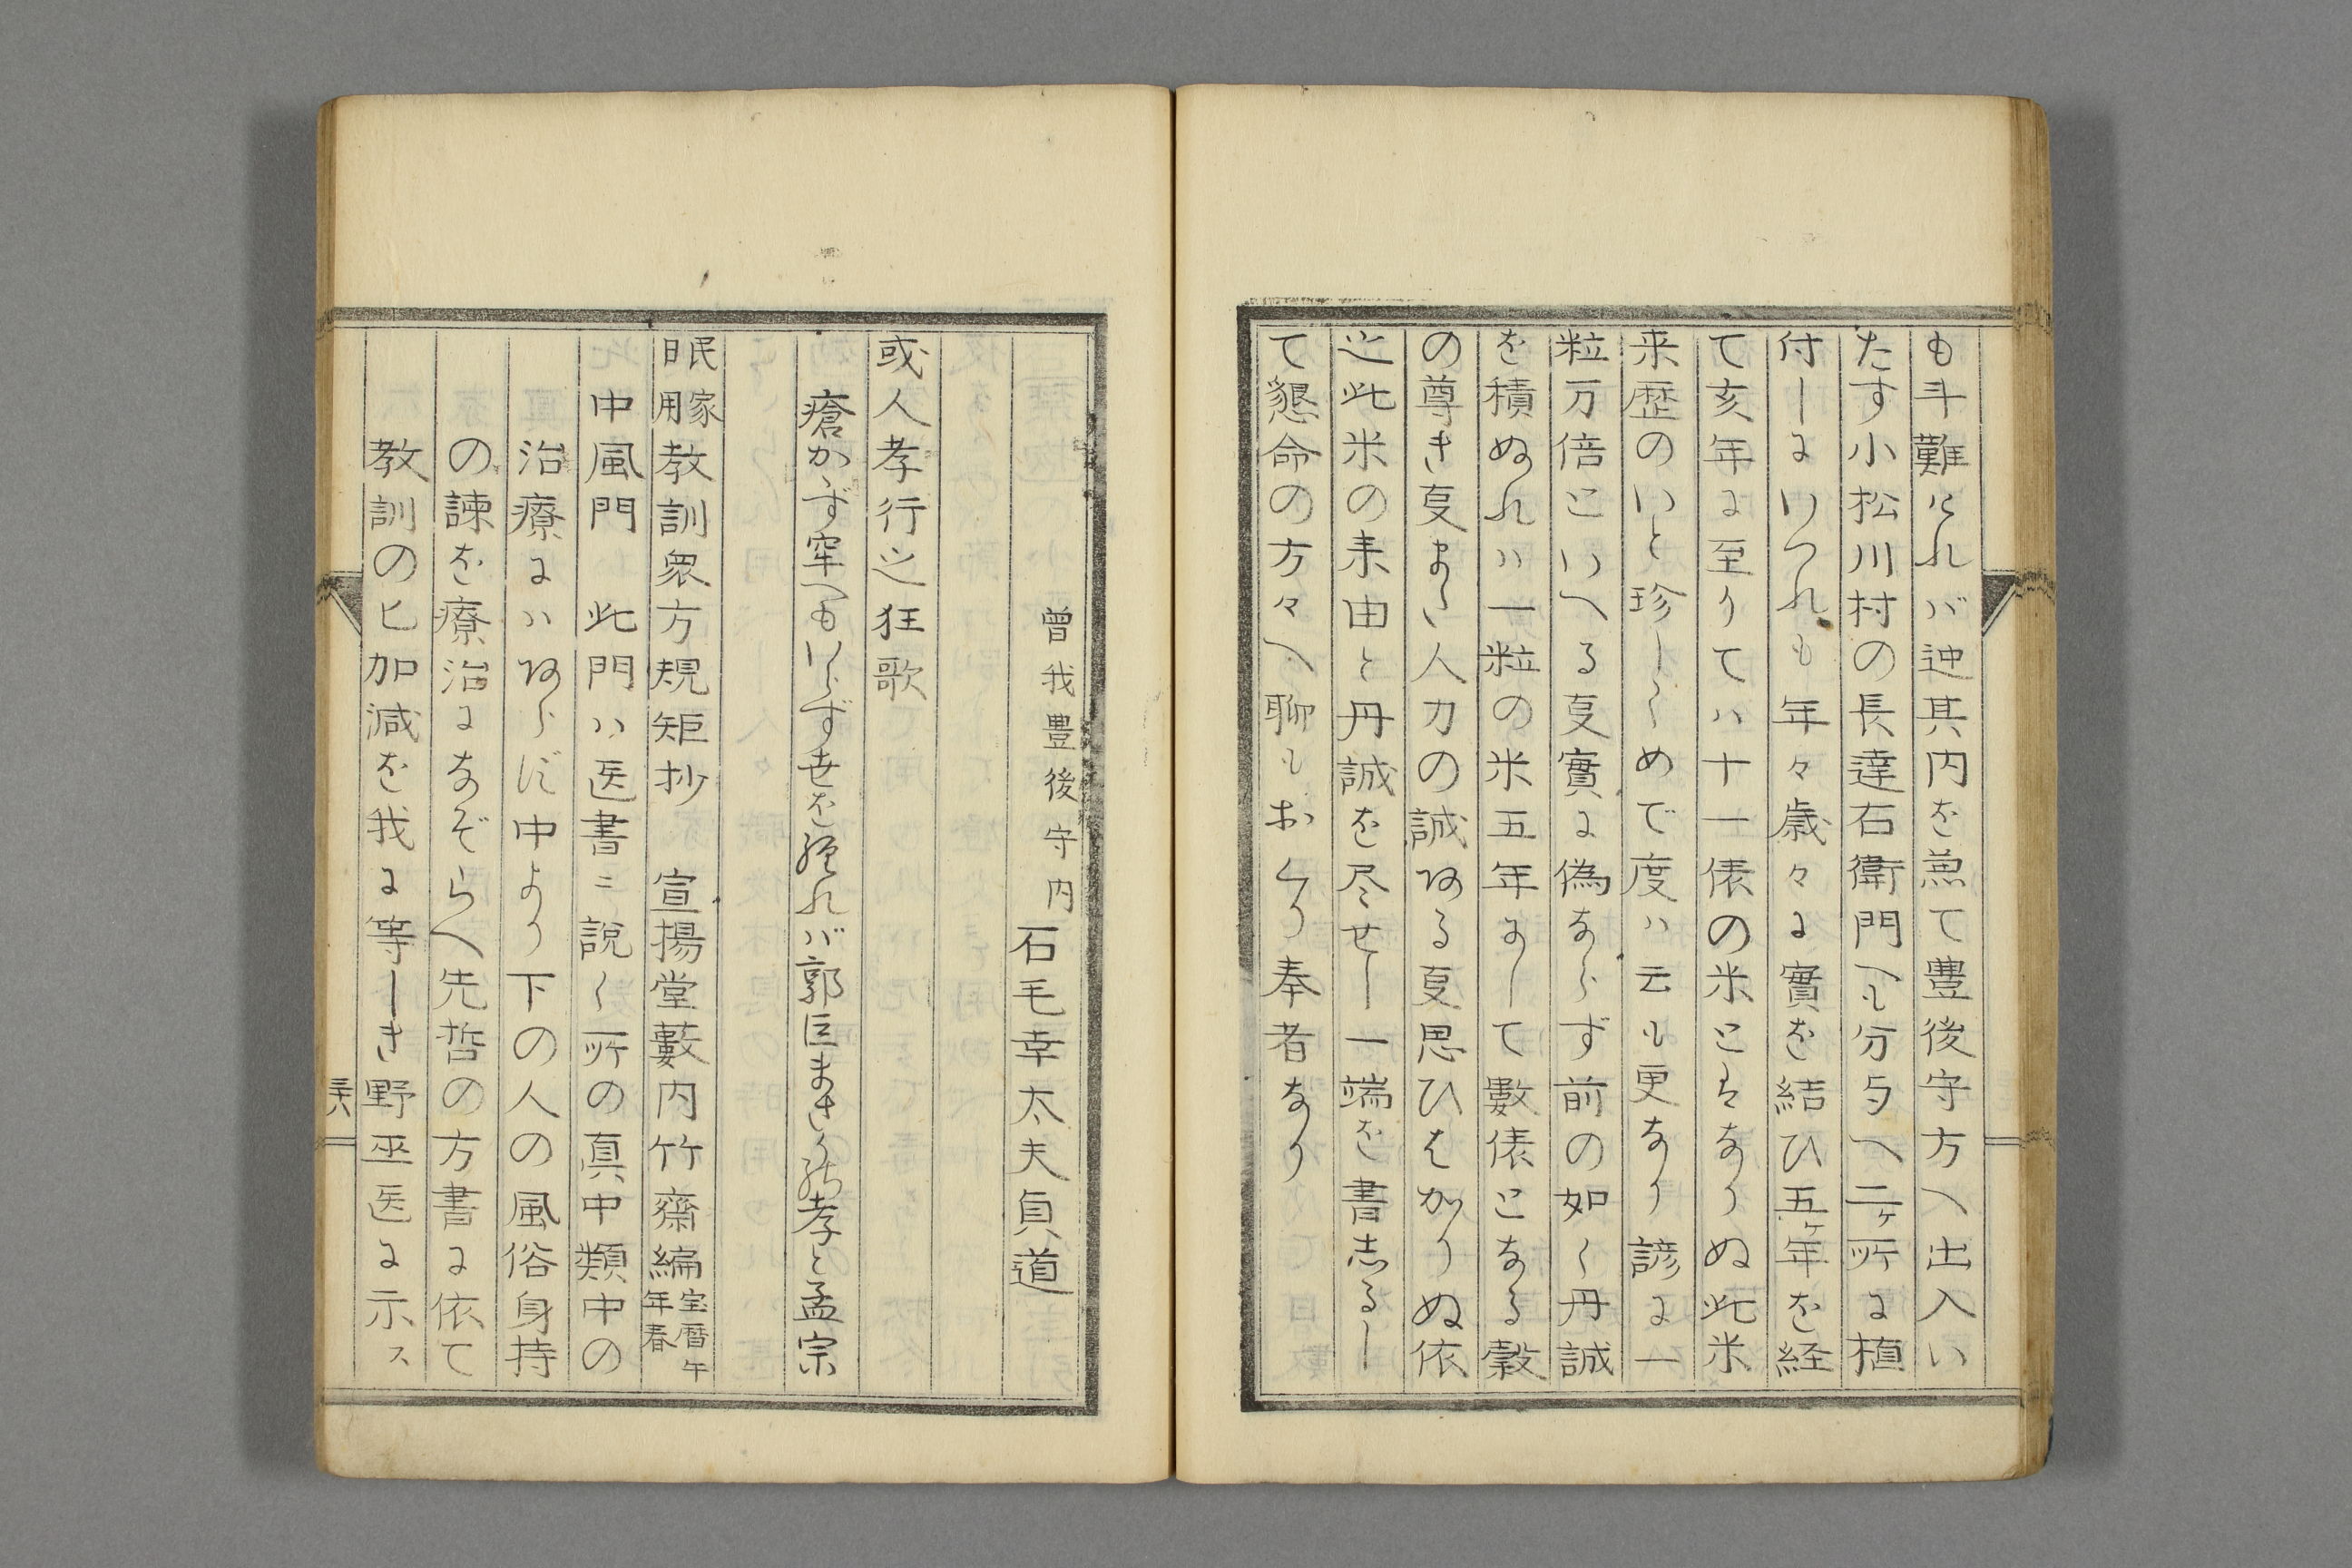 も斗難けれバ迚其内を兼て豊後守方へ出入い
たす小松川村の長達石衛門へも分与へ二ヶ所に植
付しにいつれも年々歳々に實を結ひ五ヶ年を経
て亥年に至りてハ十一俵の米とはなりぬ此米
来歴のいと珍しくめで度ハ云も更なり諺に一
粒万倍といへる㕝實に偽ならず前の如く丹誠
を積ぬれハ一粒の米五年にして數俵となる穀
の尊き㕝また人力の誠ある㕝思ひはかりぬ依
之此米の来由と丹誠を尽せし一端を書志るし
て懇命の方々へ聊もおくり奉者なり
曽我豊後守内 石毛幸太夫貞道
或人孝行之狂歌
瘡かゝず牢へもいらず世を経れバ郭巨まさりの孝と孟宗
民家日用 教訓衆方規矩抄 宣揚堂藪内竹齋編 宝暦午年春
中風門 此門ハ医書ニ説く所の真中類中の
治療にハあらず中より下の人の風俗身持
の諫を療治になぞらへ先哲の方書に依て
教訓の匕加減を我に等しき野巫医に示ス